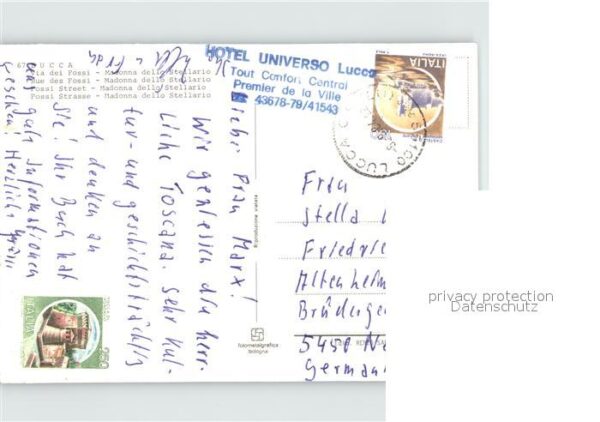 67 LUCCA
Via dei Fossi - Madonna dello Stellario
Rue des Fossi - Madonna dello Stellario
Fossi Street - Madonna dello Stellario
Fossi Strasse - Madonna dello Stellario
HOTEL UNIVERSO Lucca
Tout Confort Central
Premier de la Ville
43678-79/41543
ITALIA
LUCCA
Liebe Frau Marx!
Wir genießen die herr-
liche Toscana. Sehr kul-
tur- und geschichtsträchtig
und denken an
Sie! Ihr Buch hat
uns gute Informationen
gegeben! Herzliche Grüße
Riproduzione vietata
fotometalgrafica
bologna
Frau
Stella
Friedrie
Altenheim
Brüderge
5450 Ne
Germany
ITALIA
privacy protection
Datenschutz